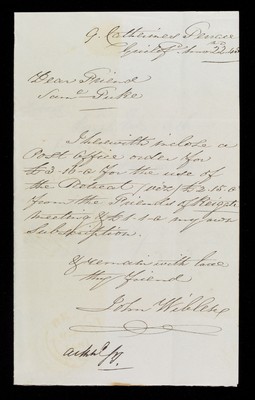 9. Catherines Terrace
Guildfd. 22. 45
Dear Friend
Saml. Tuke
I herewith inclose a
Post Office order for
£3-16-0 for the use of
the Retreat / viz / £2.15.0
from the Friends of Reigate
meeting & £1-1-0 my own
Subscription.
I remain with love
thy friend
John